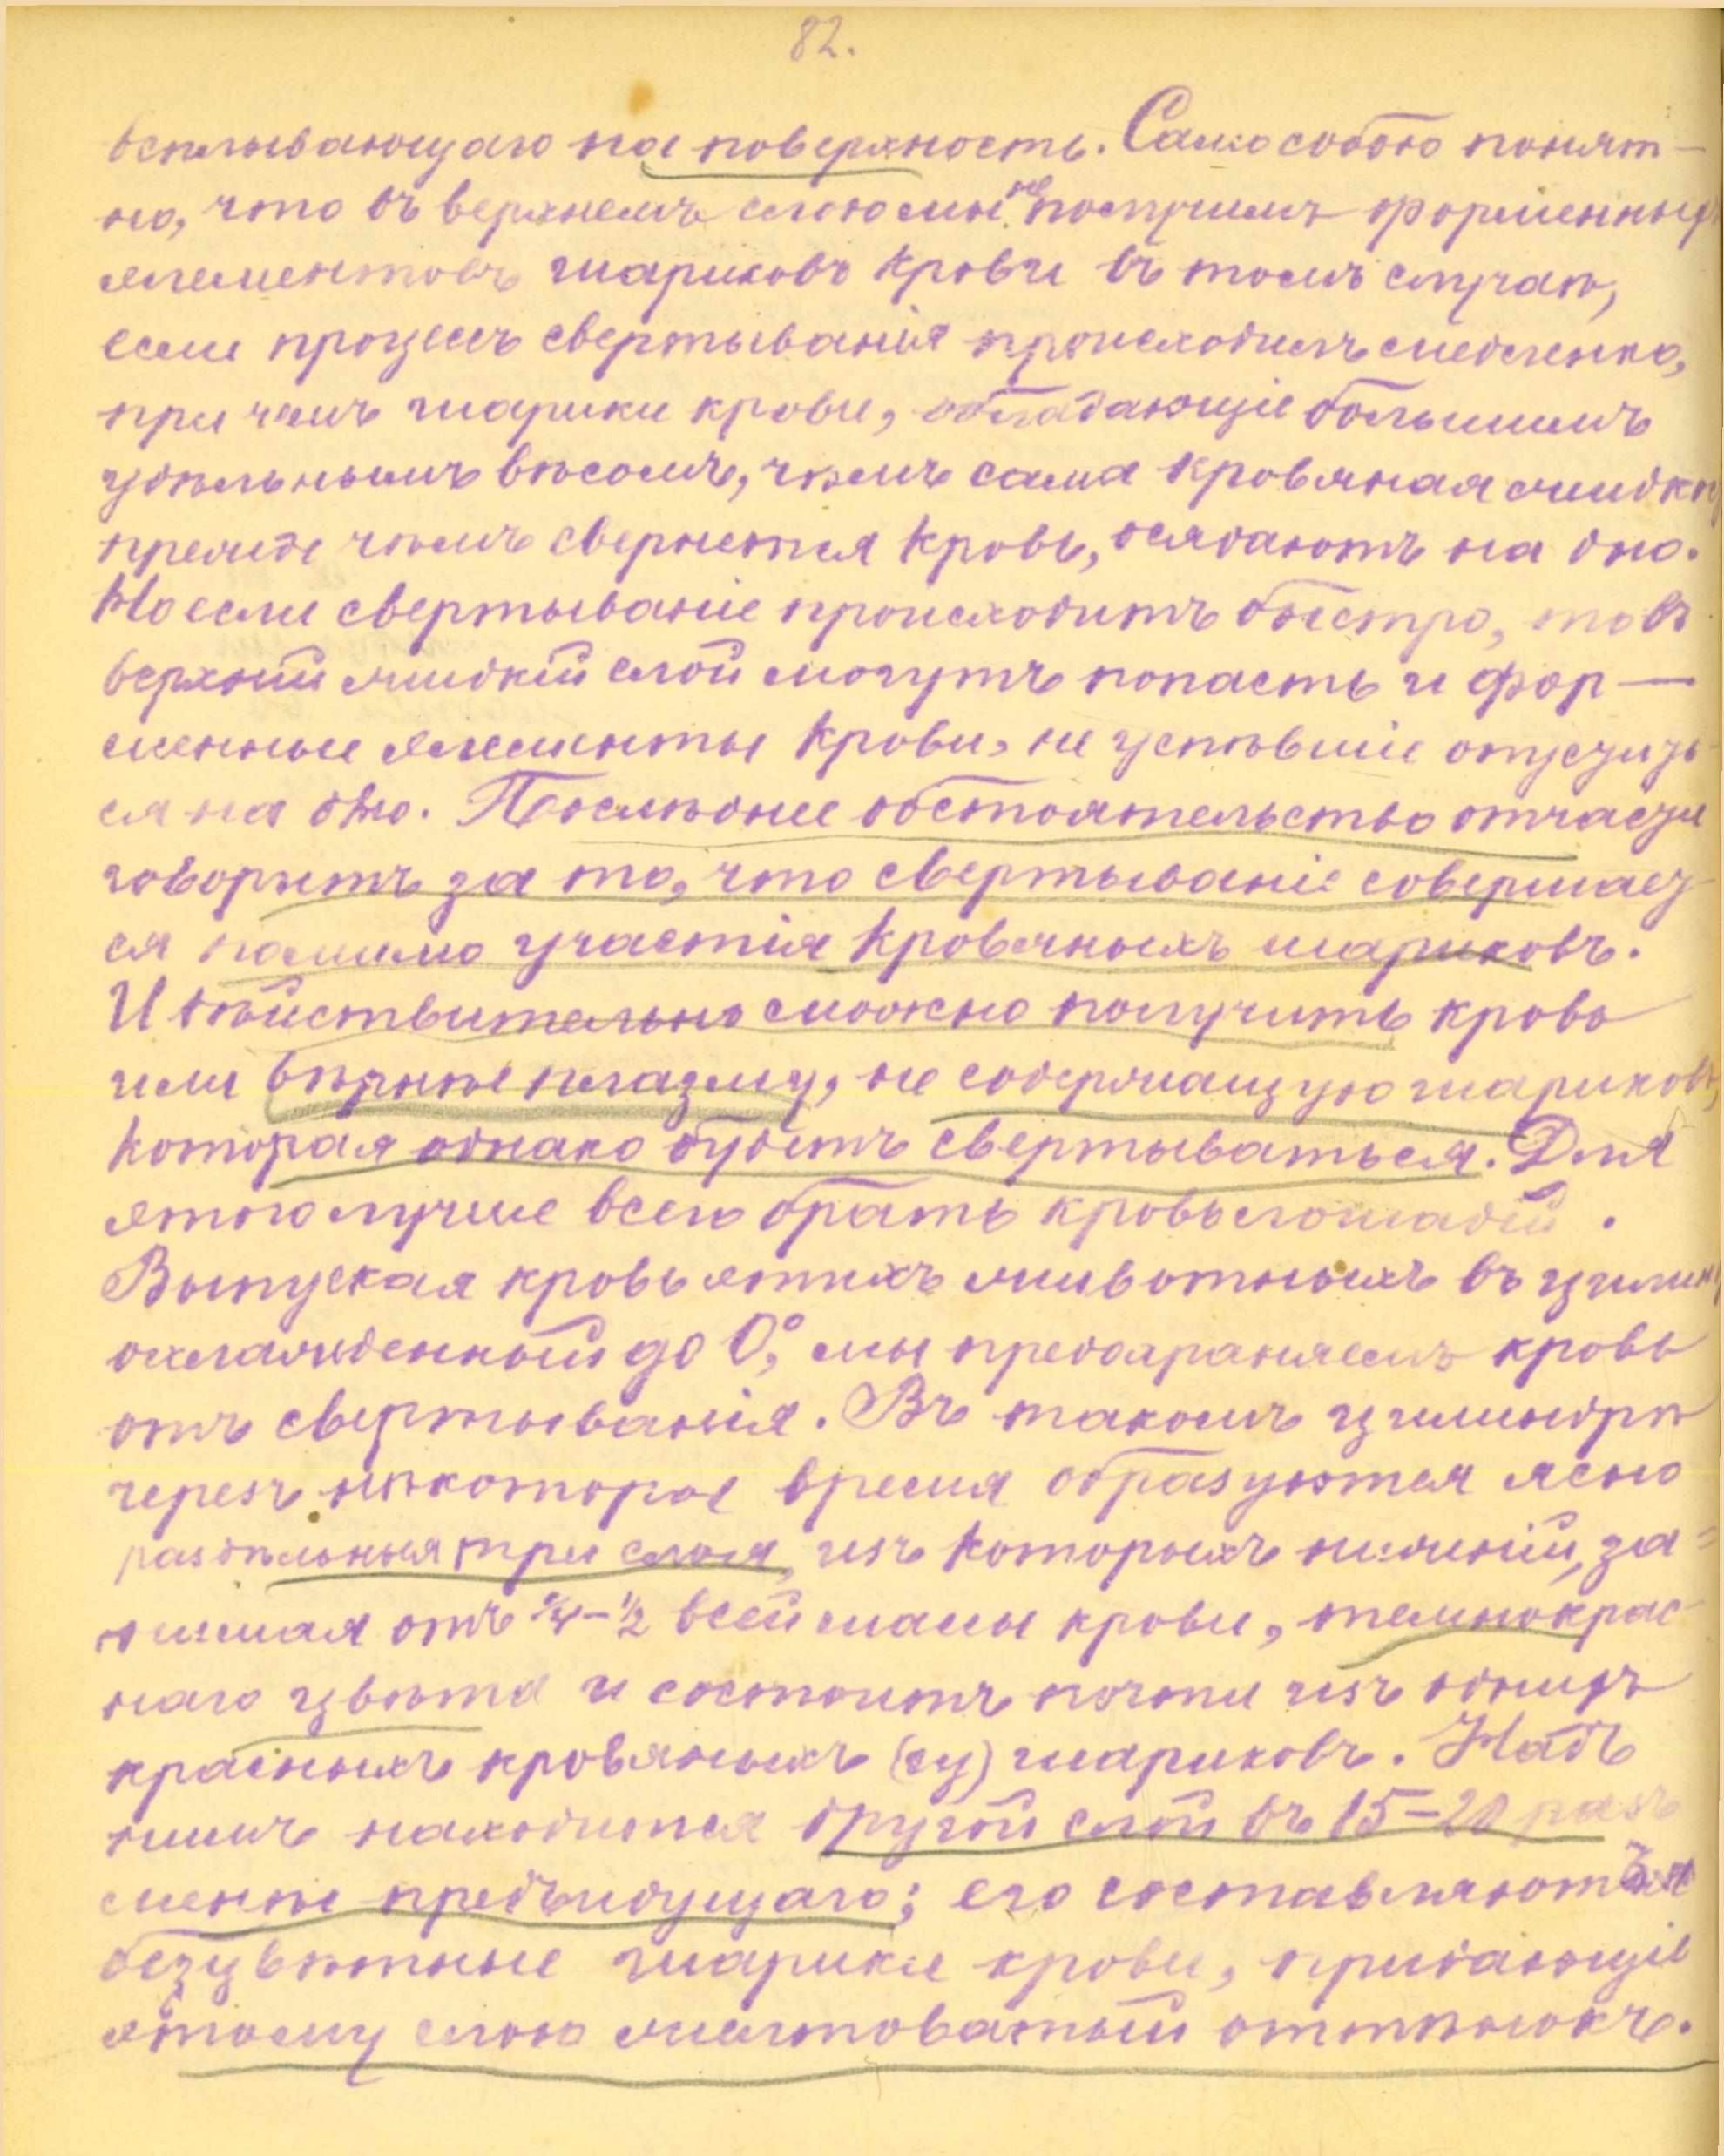 82.
всплывающаго на поверхность. Само собою понят-
но, что въ верхнемъ слою мы не получимъ форменныхъ
элементовъ шариковъ крови въ томъ случаѣ,
если процессъ свертыванія происходитъ медленно,
при чемъ шарики крови, обладающіе большимъ
удѣльнымъ вѣсомъ, чѣмъ сама кровяная жидк
прежде чѣмъ свернется кровь, осядаютъ на дно.
Но если свертываніе происходитъ быстро, то въ
верхній жидкій слой могутъ попасть и фор-
менные элементы крови, не успѣвшіе опустить
ся на дно. Послѣднее обстоятельство отчасти
говоритъ за то, что свертываніе совершает
ся помимо участія кровяныхъ шариковъ.
И дѣйствительно можно получить кровь
или вѣрнѣе плазму, не содержащую шариковъ,
которая однако будетъ свертываться. Для
этого лучше всего брать кровь лошадей.
Выпуская кровь этихъ животныхъ въ цилин
охлажденный до 0°, мы предохраняемъ кровь
отъ свертыванія. Въ такомъ цилиндрѣ
черезъ нѣкоторое время образуются ясно
раздѣльныя три слоя, изъ которыхъ нижній, за=
нимая отъ ¾-½ всей массы крови, темнокрас-
наго цвѣта и состоитъ почти изъ однихъ
красныхъ кровяныхъ шариковъ. Надъ
нимъ находится другой слой въ 15-20 разъ
менѣе предъидущаго; его составляютъ
безцвѣтные шарики крови, придающіе
этому слою желтоватый оттѣнокъ.